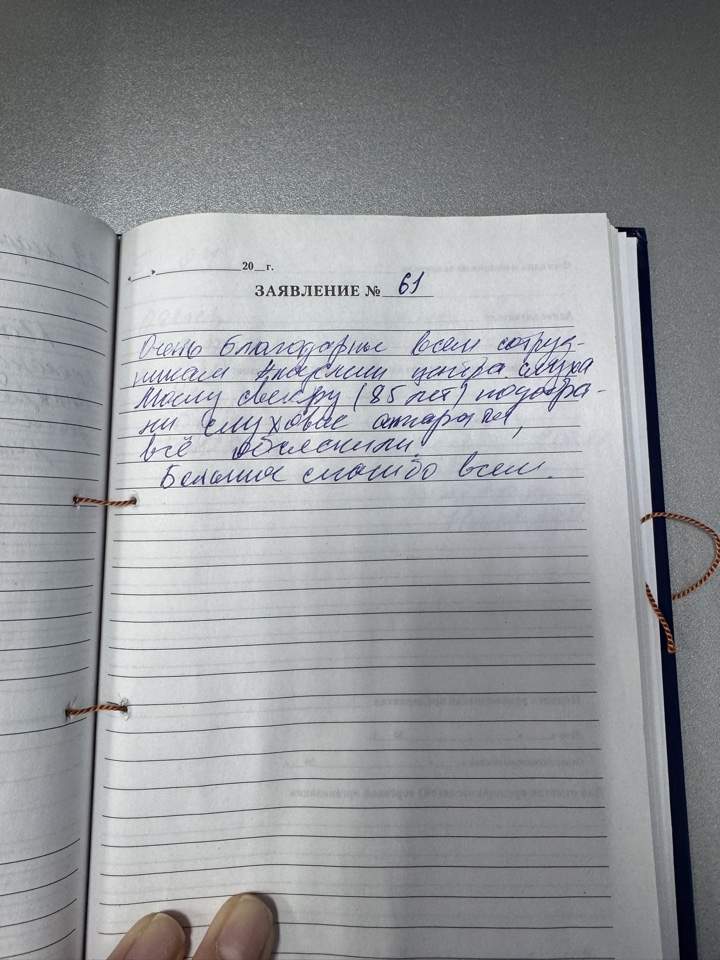 «___»____________20__г.
ЗАЯВЛЕНИЕ № 61
Очень благодарны всем сотруд-
никам центра слуха
Моему свекру (85 лет) подобра-
ли слуховые аппараты,
всё объяснили.
Большое спасибо всем.